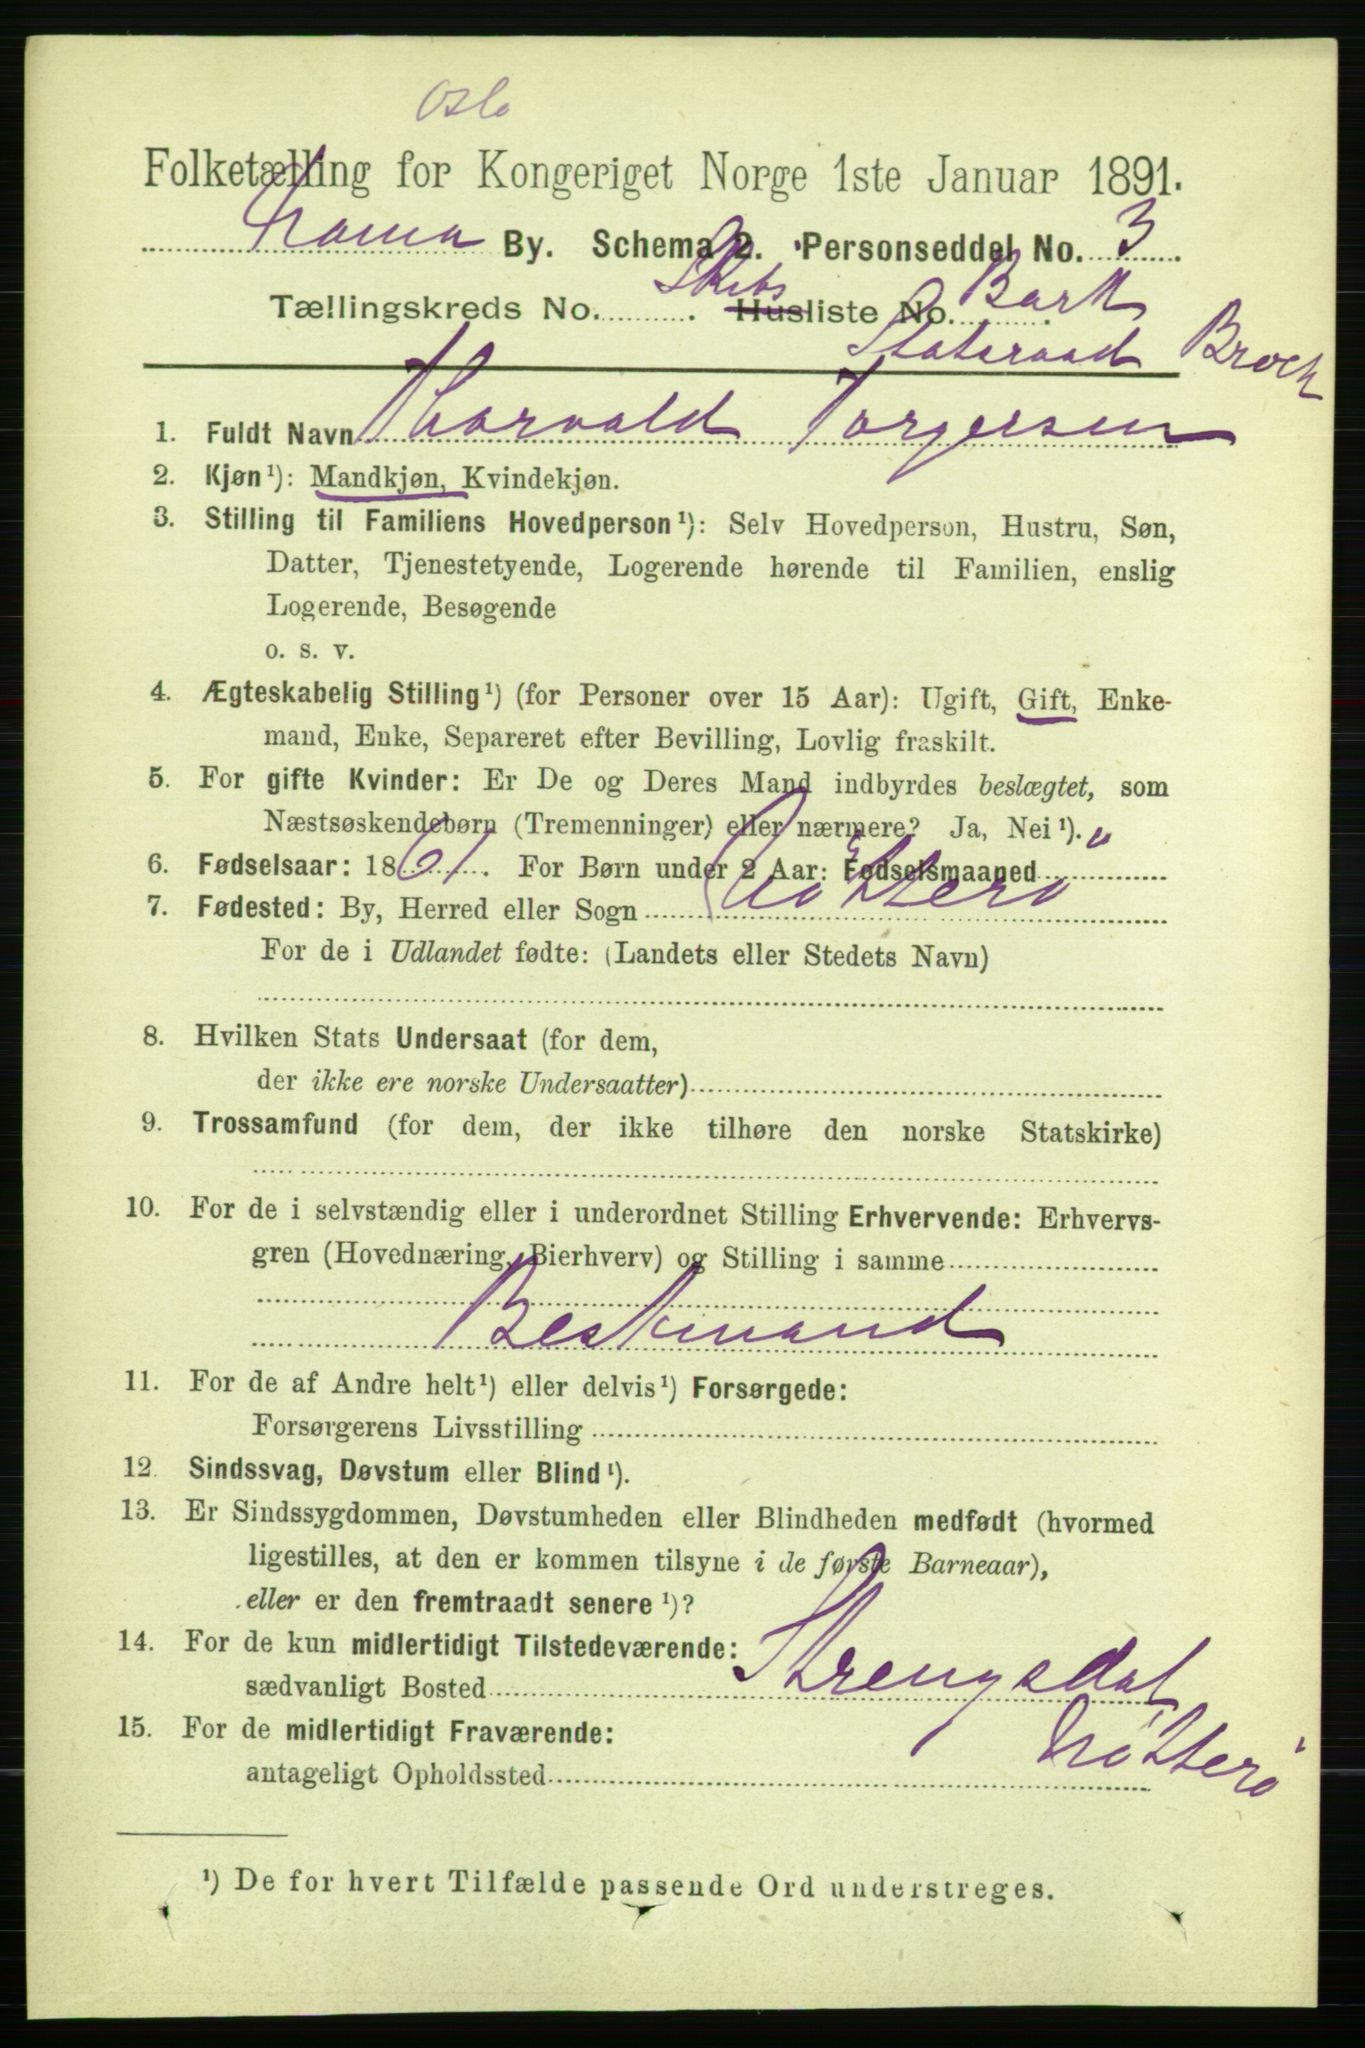 Oslo
Folketælling for Kongeriget Norge 1ste Januar 1891.
By. Schema 2. Personseddel No. 3
Tællingskreds No. . Skibsliste No. Bark
Statsraad Broch
1. Fuldt Navn Thorvald Torgersen
2. Kjøn¹): Mandkjøn, Kvindekjøn.
3. Stilling til Familiens Hovedperson¹): Selv Hovedperson, Hustru, Søn,
Datter, Tjenestetyende, Logerende hørende til Familien, enslig
Logerende, Besøgende
o. s. v.
4. Ægteskabelig Stilling¹) (for Personer over 15 Aar): Ugift, Gift, Enke-
mand, Enke, Separeret efter Bevilling, Lovlig fraskilt.
5. For gifte Kvinder: Er De og Deres Mand indbyrdes beslægtet, som
Næstsøskendebørn (Tremenninger) eller nærmere? Ja, Nei¹). "
6. Fødselsaar: 1861. For Børn under 2 Aar: Fødselsmaaned
7. Fødested: By, Herred eller Sogn Nötterö
For de i Udlandet fødte: (Landets eller Stedets Navn)
8. Hvilken Stats Undersaat (for dem,
der ikke ere norske Undersaatter)
9. Trossamfund (for dem, der ikke tilhøre den norske Statskirke)
10. For de i selvstændig eller i underordnet Stilling Erhvervende: Erhvervs-
gren (Hovednæring, Bierhverv) og Stilling i samme
Bestmand
11. For de af Andre helt¹) eller delvis¹) Forsørgede:
Forsørgerens Livsstilling
12. Sindssvag, Døvstum eller Blind¹).
13. Er Sindssygdommen, Døvstumheden eller Blindheden medfødt (hvormed
ligestilles, at den er kommen tilsyne i de første Barneaar),
eller er den fremtraadt senere¹)?
14. For de kun midlertidigt Tilstedeværende:
sædvanligt Bosted Strengsdal
15. For de midlertidigt Fraværende: Nötterö
antageligt Opholdssted
¹) De for hvert Tilfælde passende Ord understreges.